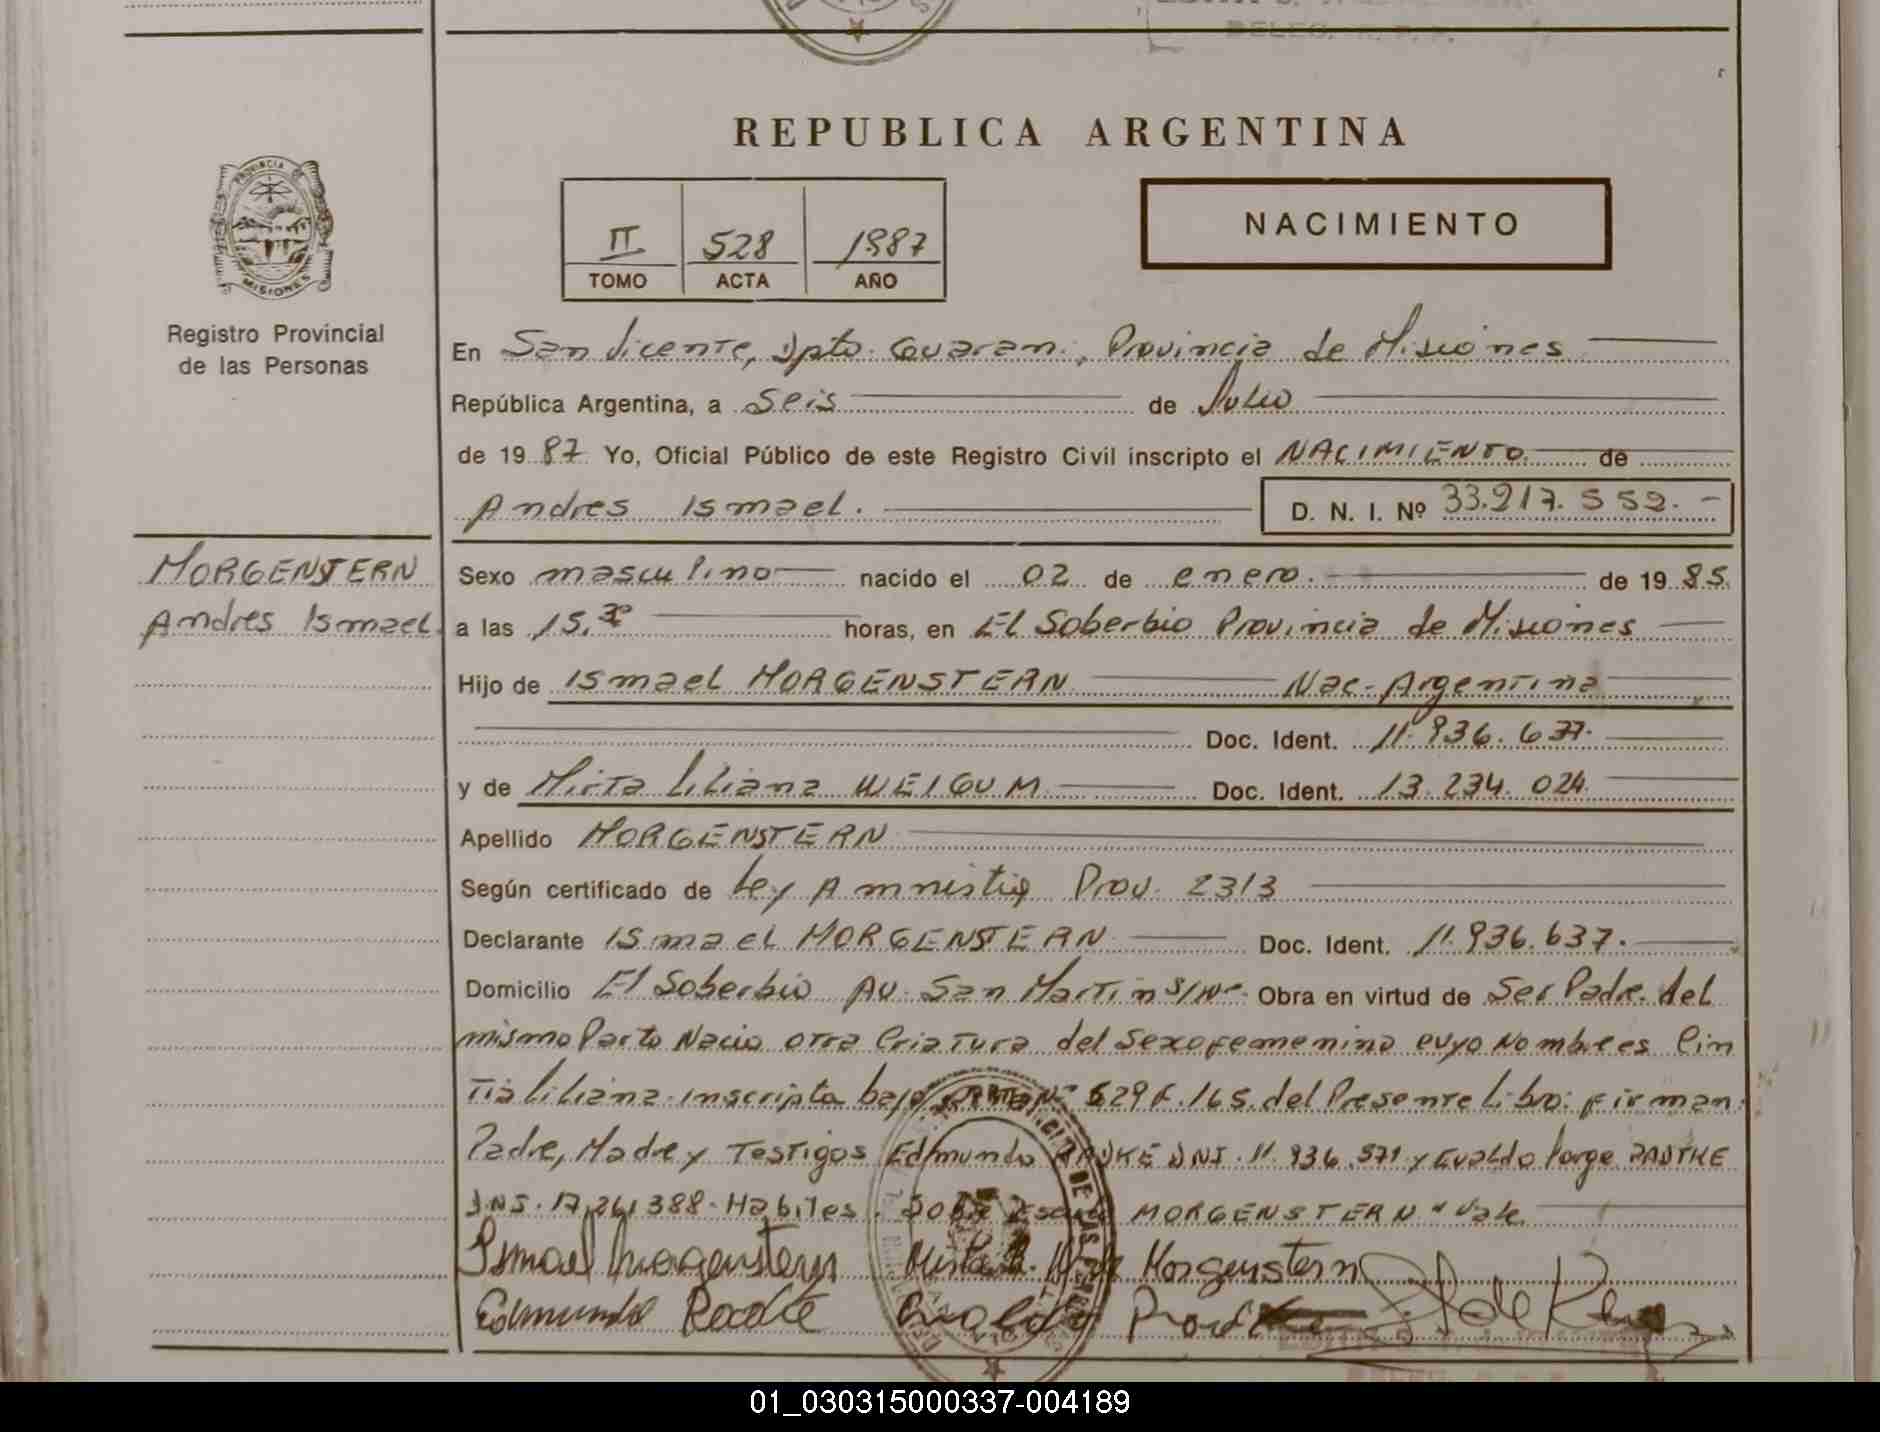 REPUBLICA ARGENTINA
PROVINCIA DE
MISIONES
Registro Provincial
de las Personas
II 528 1987
TOMO ACTA AÑO
NACIMIENTO
En San Vicente, Dpto. Guarani, Provincia de Misiones
República Argentina, a Seis de Julio
de 1987 Yo, Oficial Público de este Registro Civil inscripto el NACIMIENTO de
Andres Ismael. D. N. I. Nº 33.217.559.-
MORGENSTERN
Andres Ismael.
Sexo masculino nacido el 02 de enero. de 1985.
a las 15,30 horas, en El Soberbio Provincia de Misiones
Hijo de Ismael MORGENSTERN Nac-Argentina
Doc. Ident. 11.936.637.
y de Mirta Liliana WEIGUM Doc. Ident. 13.234.024.
Apellido MORGENSTERN
Según certificado de Ley Amnistia Prov. 2313
Declarante Ismael MORGENSTERN Doc. Ident. 11.936.637.
Domicilio El Soberbio Av. San Martin S/Nº Obra en virtud de Ser Padre. del
mismo Parto Nacio otra Criatura del Sexo femenino cuyo Nombre es Cin
tia Liliana inscripta bajo Nº 529 F. 165. del Presente Libro: firman.
Padre, Madre y Testigos Edmundo DNI. 11.936.571 y Evaldo Jorge
DNI. 17,261,388. Habiles. Sobre MORGENSTERN" Vale
Ismael Morgenstern Mirta de Morgenstern
Edmundo
01_030315000337-004189